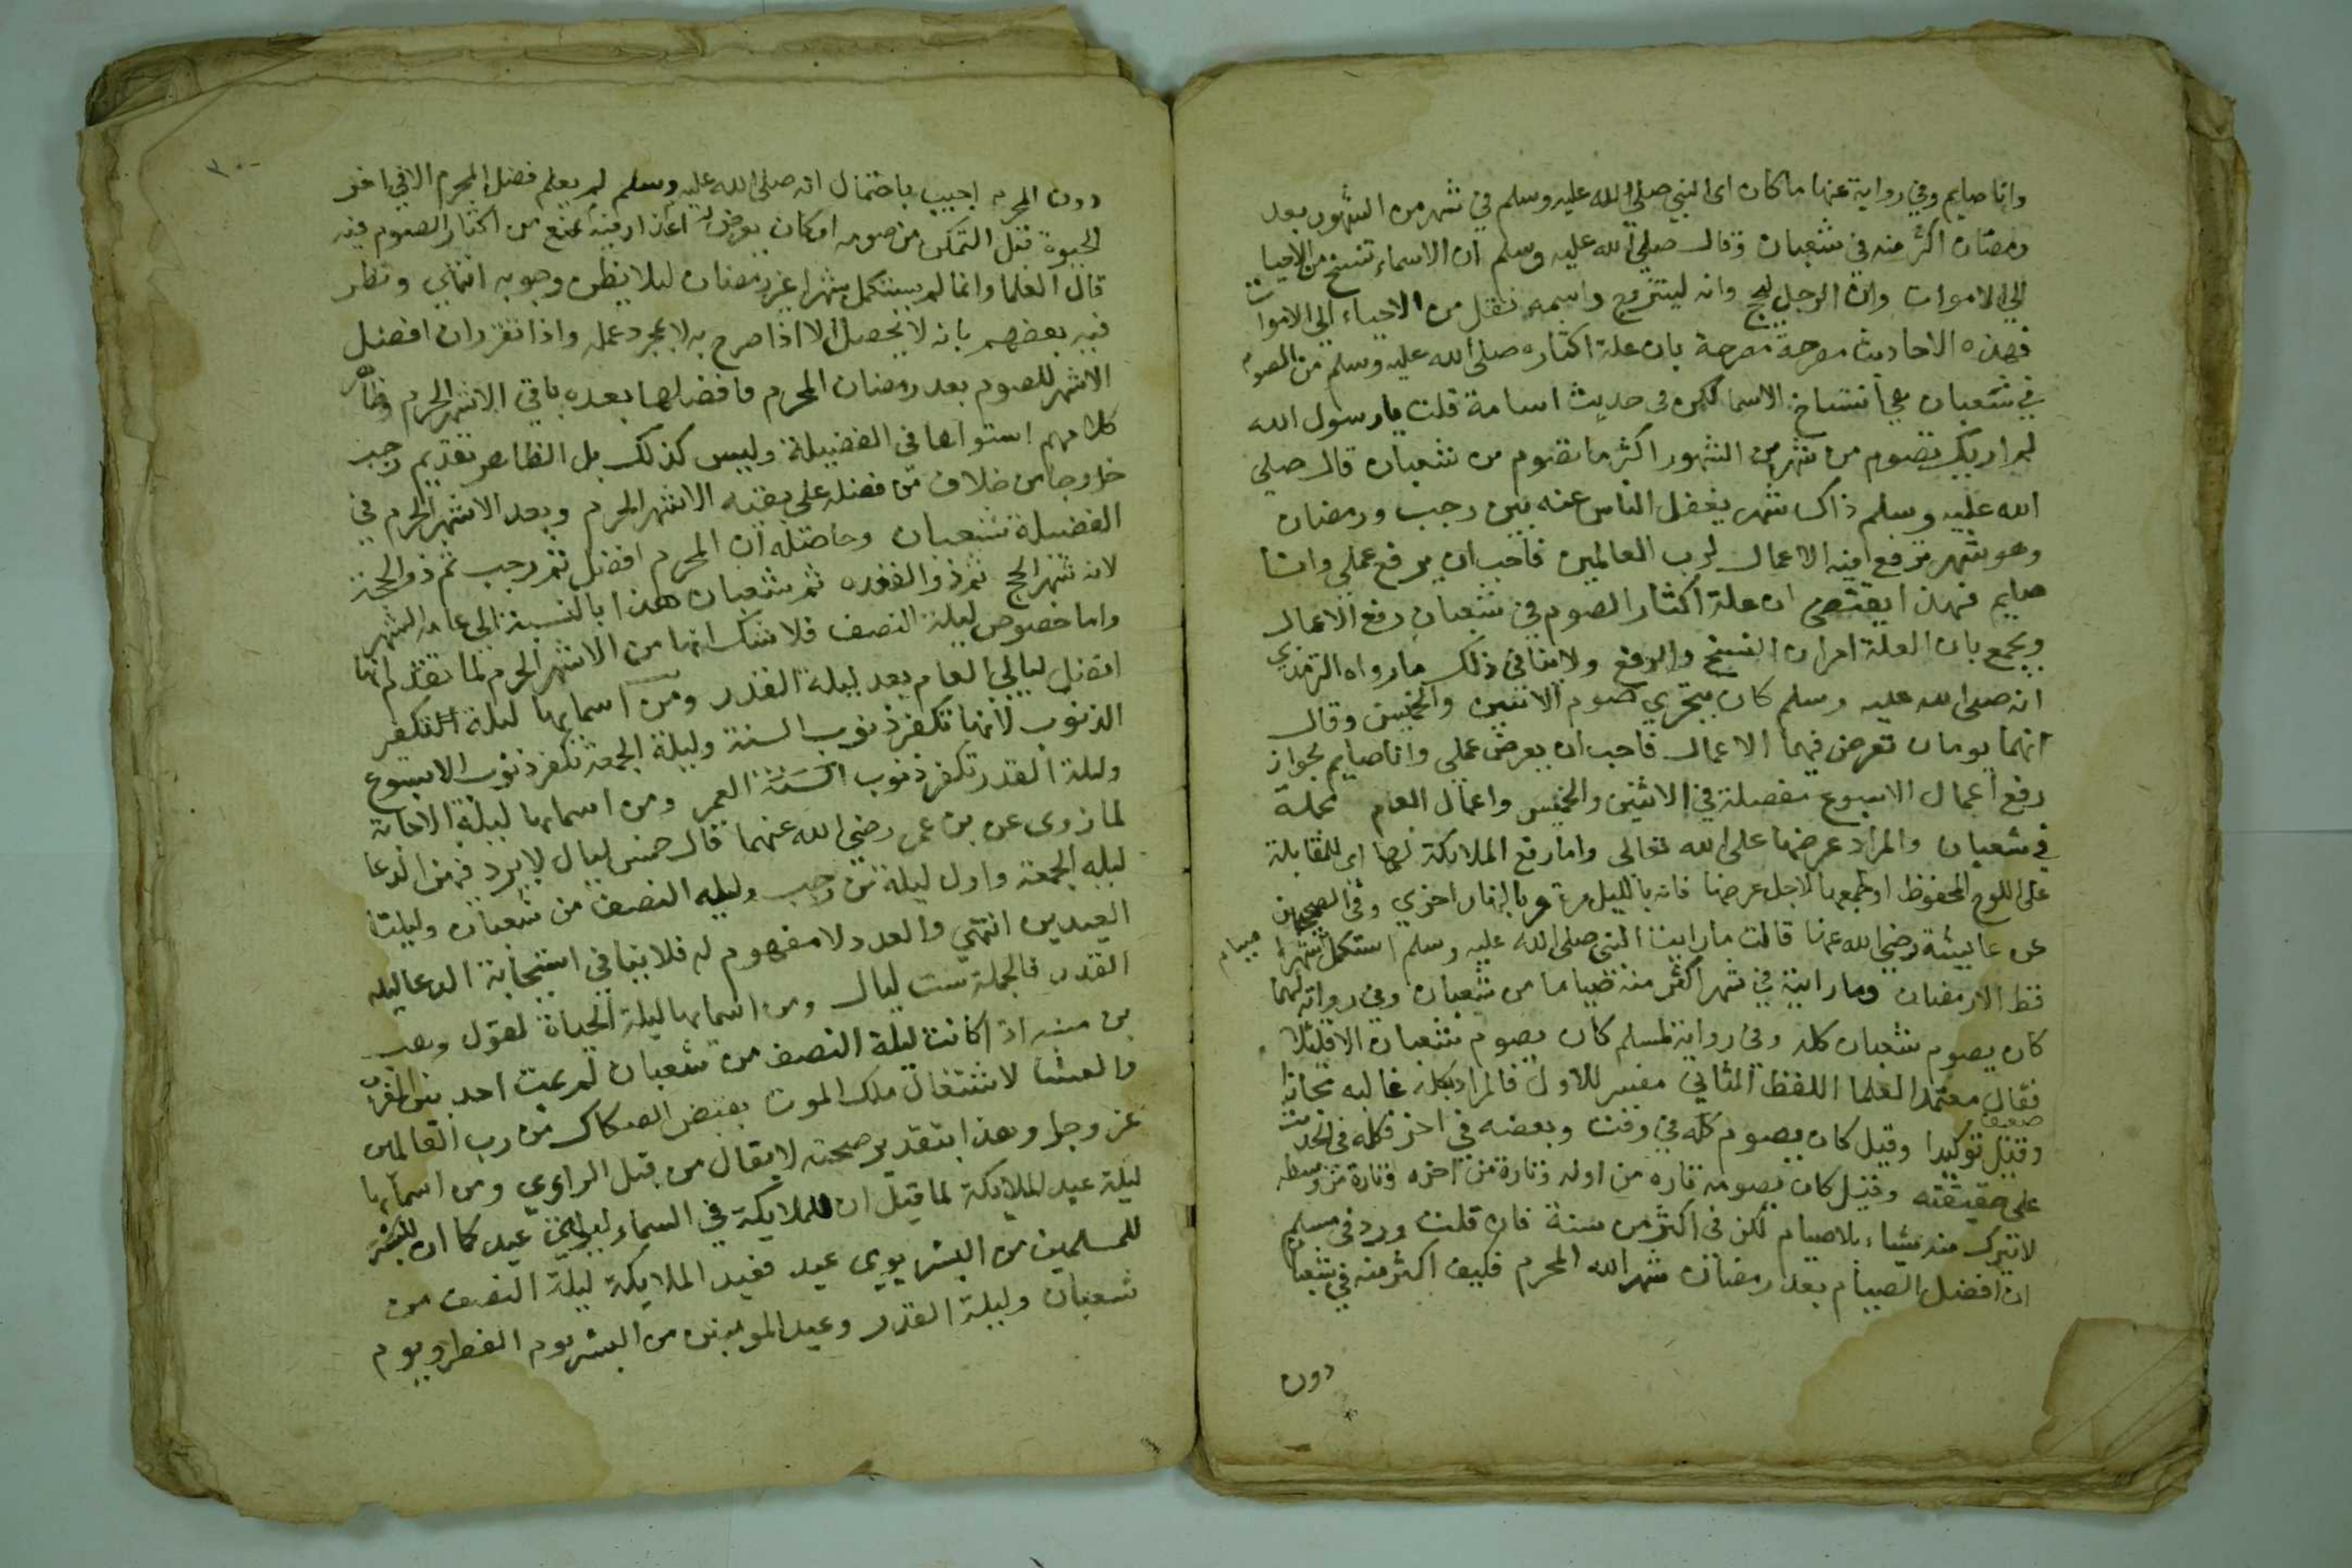 وانا صايم وفي رواية عنها ما كان اى النبي صلى الله عليه وسلم في شهر من الشهور بعد
رمضان اكثر منه في شعبان وقال صلى الله عليه وسلم ان الاسماء تنسخ من الاحيا
الى الاموات وان الرجل ليحج وانه ليتزوج واسمه نقل من الاحياء الى الاموات
فهذه الاحاديث مصرحة بان علة اكثاره صلى الله عليه وسلم من الصوم
في شعبان هي انتساخ الاسما لكن في حديث اسامة قلت يا رسول الله
لم اريك تصوم من شهر من الشهور اكثر ما تصوم من شعبان قال صلى
الله عليه وسلم ذاك شهر يغفل الناس عنه بين رجب ورمضان
وهو شهر ترفع فيه الاعمال لرب العالمين فاحب ان يرفع عملي وانا
صايم فهذا يقتضى ان علة اكثار الصوم في شعبان رفع الاعمال
ويجمع بان العلة امران النسخ والرفع ولا ينافى ذلك ما رواه الترمذي
انه صلى الله عليه وسلم كان يتحري صوم الاثنين والخميس وقال
انهما يومان تعرض فيهما الاعمال فاحب ان يعرض عملى وانا صايم لجواز
رفع اعمال الاسبوع مفصلة في الاثنين والخميس واعمال العام جملة
في شعبان والمراد عرضها على الله تعالى واما رفع الملايكة لها اى للمقابلة
على اللوح المحفوظ او لجمعها لاجل عرضها فانه بالليل مرة وبالنهار اخري وفى الصحيحين
عن عايشة رضي الله عنها قالت ما رايت النبى صلى الله عليه وسلم استكمل شهرا
صيام
قط الا رمضان وما رايته في شهر اكثر منه صياما من شعبان وفي رواية لهما
كان يصوم شعبان كله وفي رواية لمسلم كان يصوم شعبان الا قليلا
فقال معتمد العلما اللفظ الثاني مفسر للاول فالمراد بكله غالبه مجازا
ضعيف
وقيل توكيدا وقيل كان يصوم كله في وقت وبعضه في اخر فكله فى الحديث
على حقيقته وقيل كان يصومه تاره من اوله وتارة من اخره وتارة من وسطه
لا يترك منه شياء بلا صيام لكن فى اكثر من سنة فان قلت ورد في مسلم
ان افضل الصيام بعد رمضان شهر الله المحرم فكيف اكثر منه في شعبان
دون
دون المحرم اجيب باحتمال انه صلى الله عليه وسلم لم يعلم فضل المحرم الا في اخر
الحيوة قبل التمكن من صومه او كان يعرض له اعذار فيه تمنع من اكثار الصوم فيه
قال العلما وانما لم يستكمل شهرا غير رمضان ليلا يظن وجوبه انتهي ونظر
فيه بعضهم بانه لا يحصل الا اذا صرح به لا بمجرد عمله واذا تقرر ان افضل
الاشهر للصوم بعد رمضان المحرم فافضلها بعده باقي الاشهر الحرم وظاهر
كلامهم استواها فى الفضيلة وليس كذلك بل الظاهر تقديم رجب
خروجا من خلاف من فضله على بقية الاشهر الحرم وبعد الاشهر الحرم في
الفضيلة شعبان وحاصله ان المحرم افضل ثم رجب ثم ذو الحجة
لانه شهر الحج ثم ذو القعده ثم شعبان هذا بالنسبة الى عامه الشهر
واما خصوص ليلة النصف فلا شك انها من الاشهر الحرم لما تقدم انها
افضل ليالي العام بعد ليلة القدر ومن اسمايها ليلة التكفير
الذنوب لانها تكفر ذنوب السنة وليلة الجمعة تكفر ذنوب الاسبوع
وليلة القدر تكفر ذنوب السنة العمر ومن اسمايها ليلة الاجابة
لما روى عن بن عمر رضي الله عنهما قال خمس ليال لا يرد فيهن الدعا
ليله الجمعة واول ليلة من رجب وليله النصف من شعبان وليلتا
العيدين انتهي والعدد لا مفهوم له فلا ينافي استجابة الدعا ليله
القدر فالجملة ست ليال ومن اسمايها ليلة الحياة لقول وهب
بن منبه اذا كانت ليلة النصف من شعبان لم يمت احد بين المغرب
والعشا لاشتغال ملك الموت بقبض الصكاك من رب العالمين
عز وجل وهذا بتقدير صحته لا يقال من قبل الراوي ومن اسمايها
ليلة عيد الملايكة لما قيل ان للملايكة في السماء ليلتي عيد كما ان للبشر
للمسلمين من البشر يومى عيد فعيد الملايكة ليلة النصف من
شعبان وليلة القدر وعيد المومنين من البشر يوم الفطر ويوم